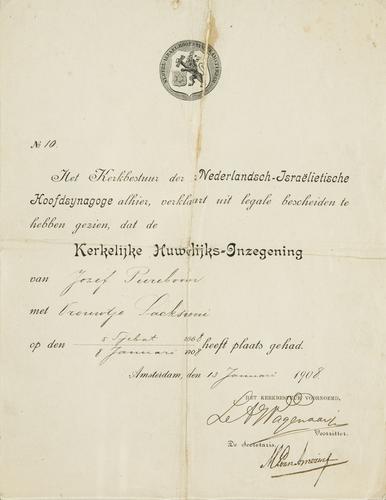 No 10.
Het Kerkbestuur der Nederlandsch-Israëlietische
Hoofdsynagoge alhier, verklaart uit legale bescheiden te
hebben gezien, dat de
Kerkelijke Huwelijks-Inzegening
van Jozef
met Vrouwtje
op den 5 Tjebat 5668 heeft plaats gehad.
8 Januari 1908
Amsterdam, den 13 Januari 1908.
HET KERKBESTUUR VOORNOEMD,
Wagenaar
Voorzitter.
De Secretaris.